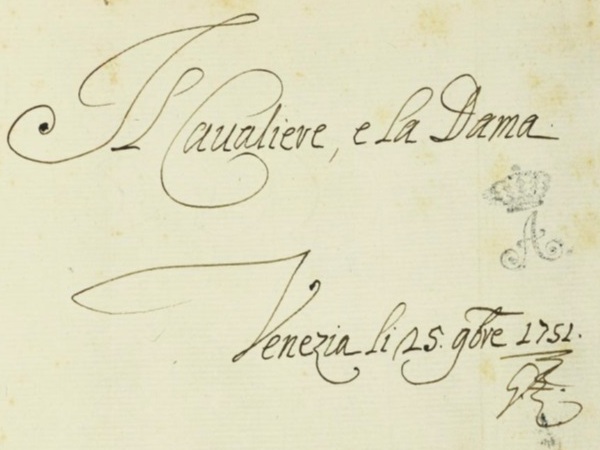 Il Caualiere, e la Dama.
A
Venezia li 25. 9bre 1751.